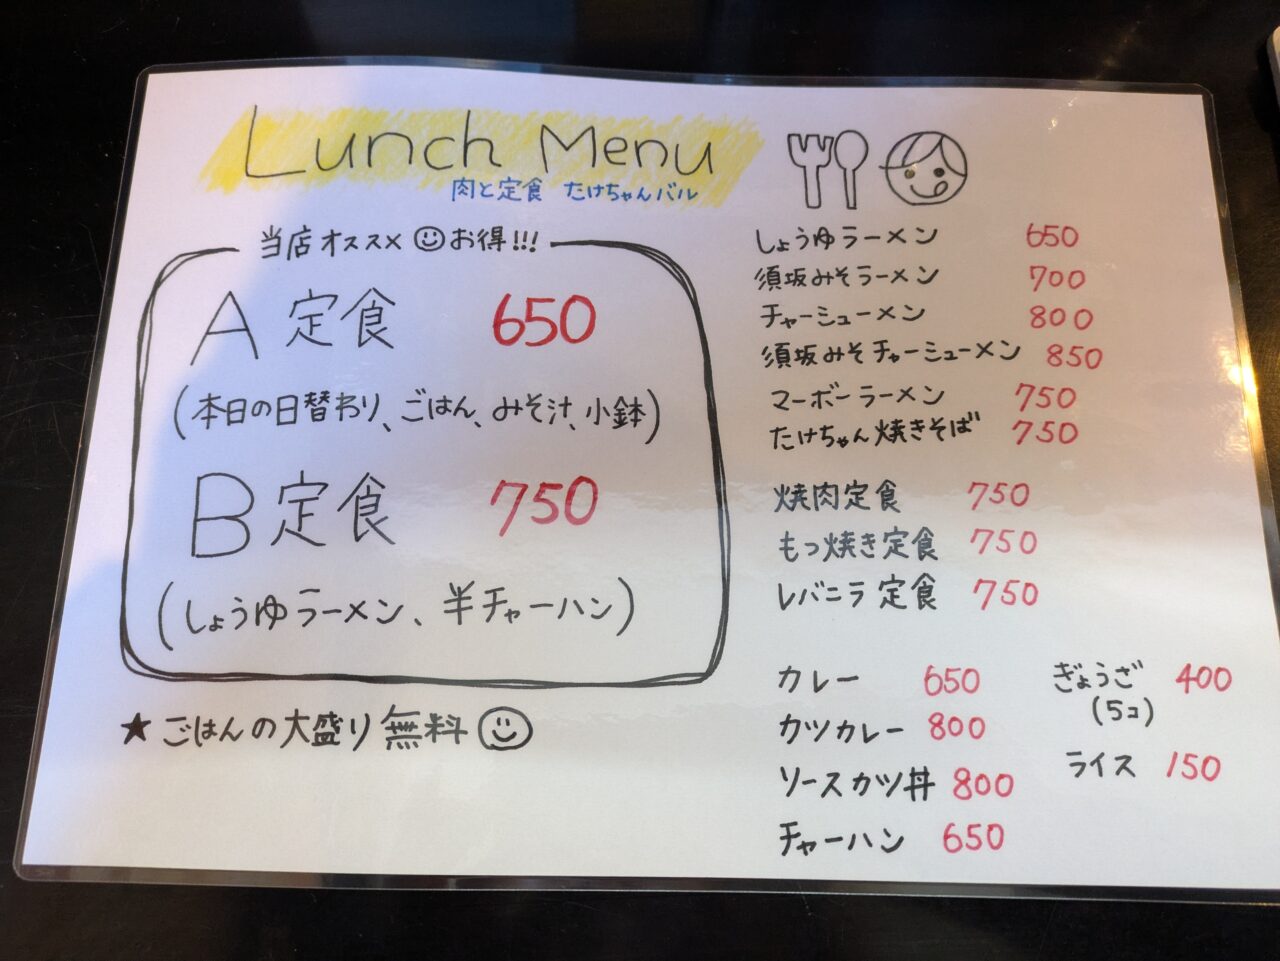 Lunch Menu
肉と定食 たけちゃんバル
当店オススメ お得!!!
A 定食 650
(本日の日替わり、ごはん、みそ汁、小鉢)
B 定食 750
(しょうゆラーメン、半チャーハン)
★ごはんの大盛り無料
しょうゆラーメン 650
須坂みそラーメン 700
チャーシューメン 800
須坂みそチャーシューメン 850
マーボーラーメン 750
たけちゃん焼きそば 750
焼肉定食 750
もつ焼き定食 750
レバニラ定食 750
カレー 650
カツカレー 800
ソースカツ丼 800
チャーハン 650
ぎょうざ 400
(5コ)
ライス 150